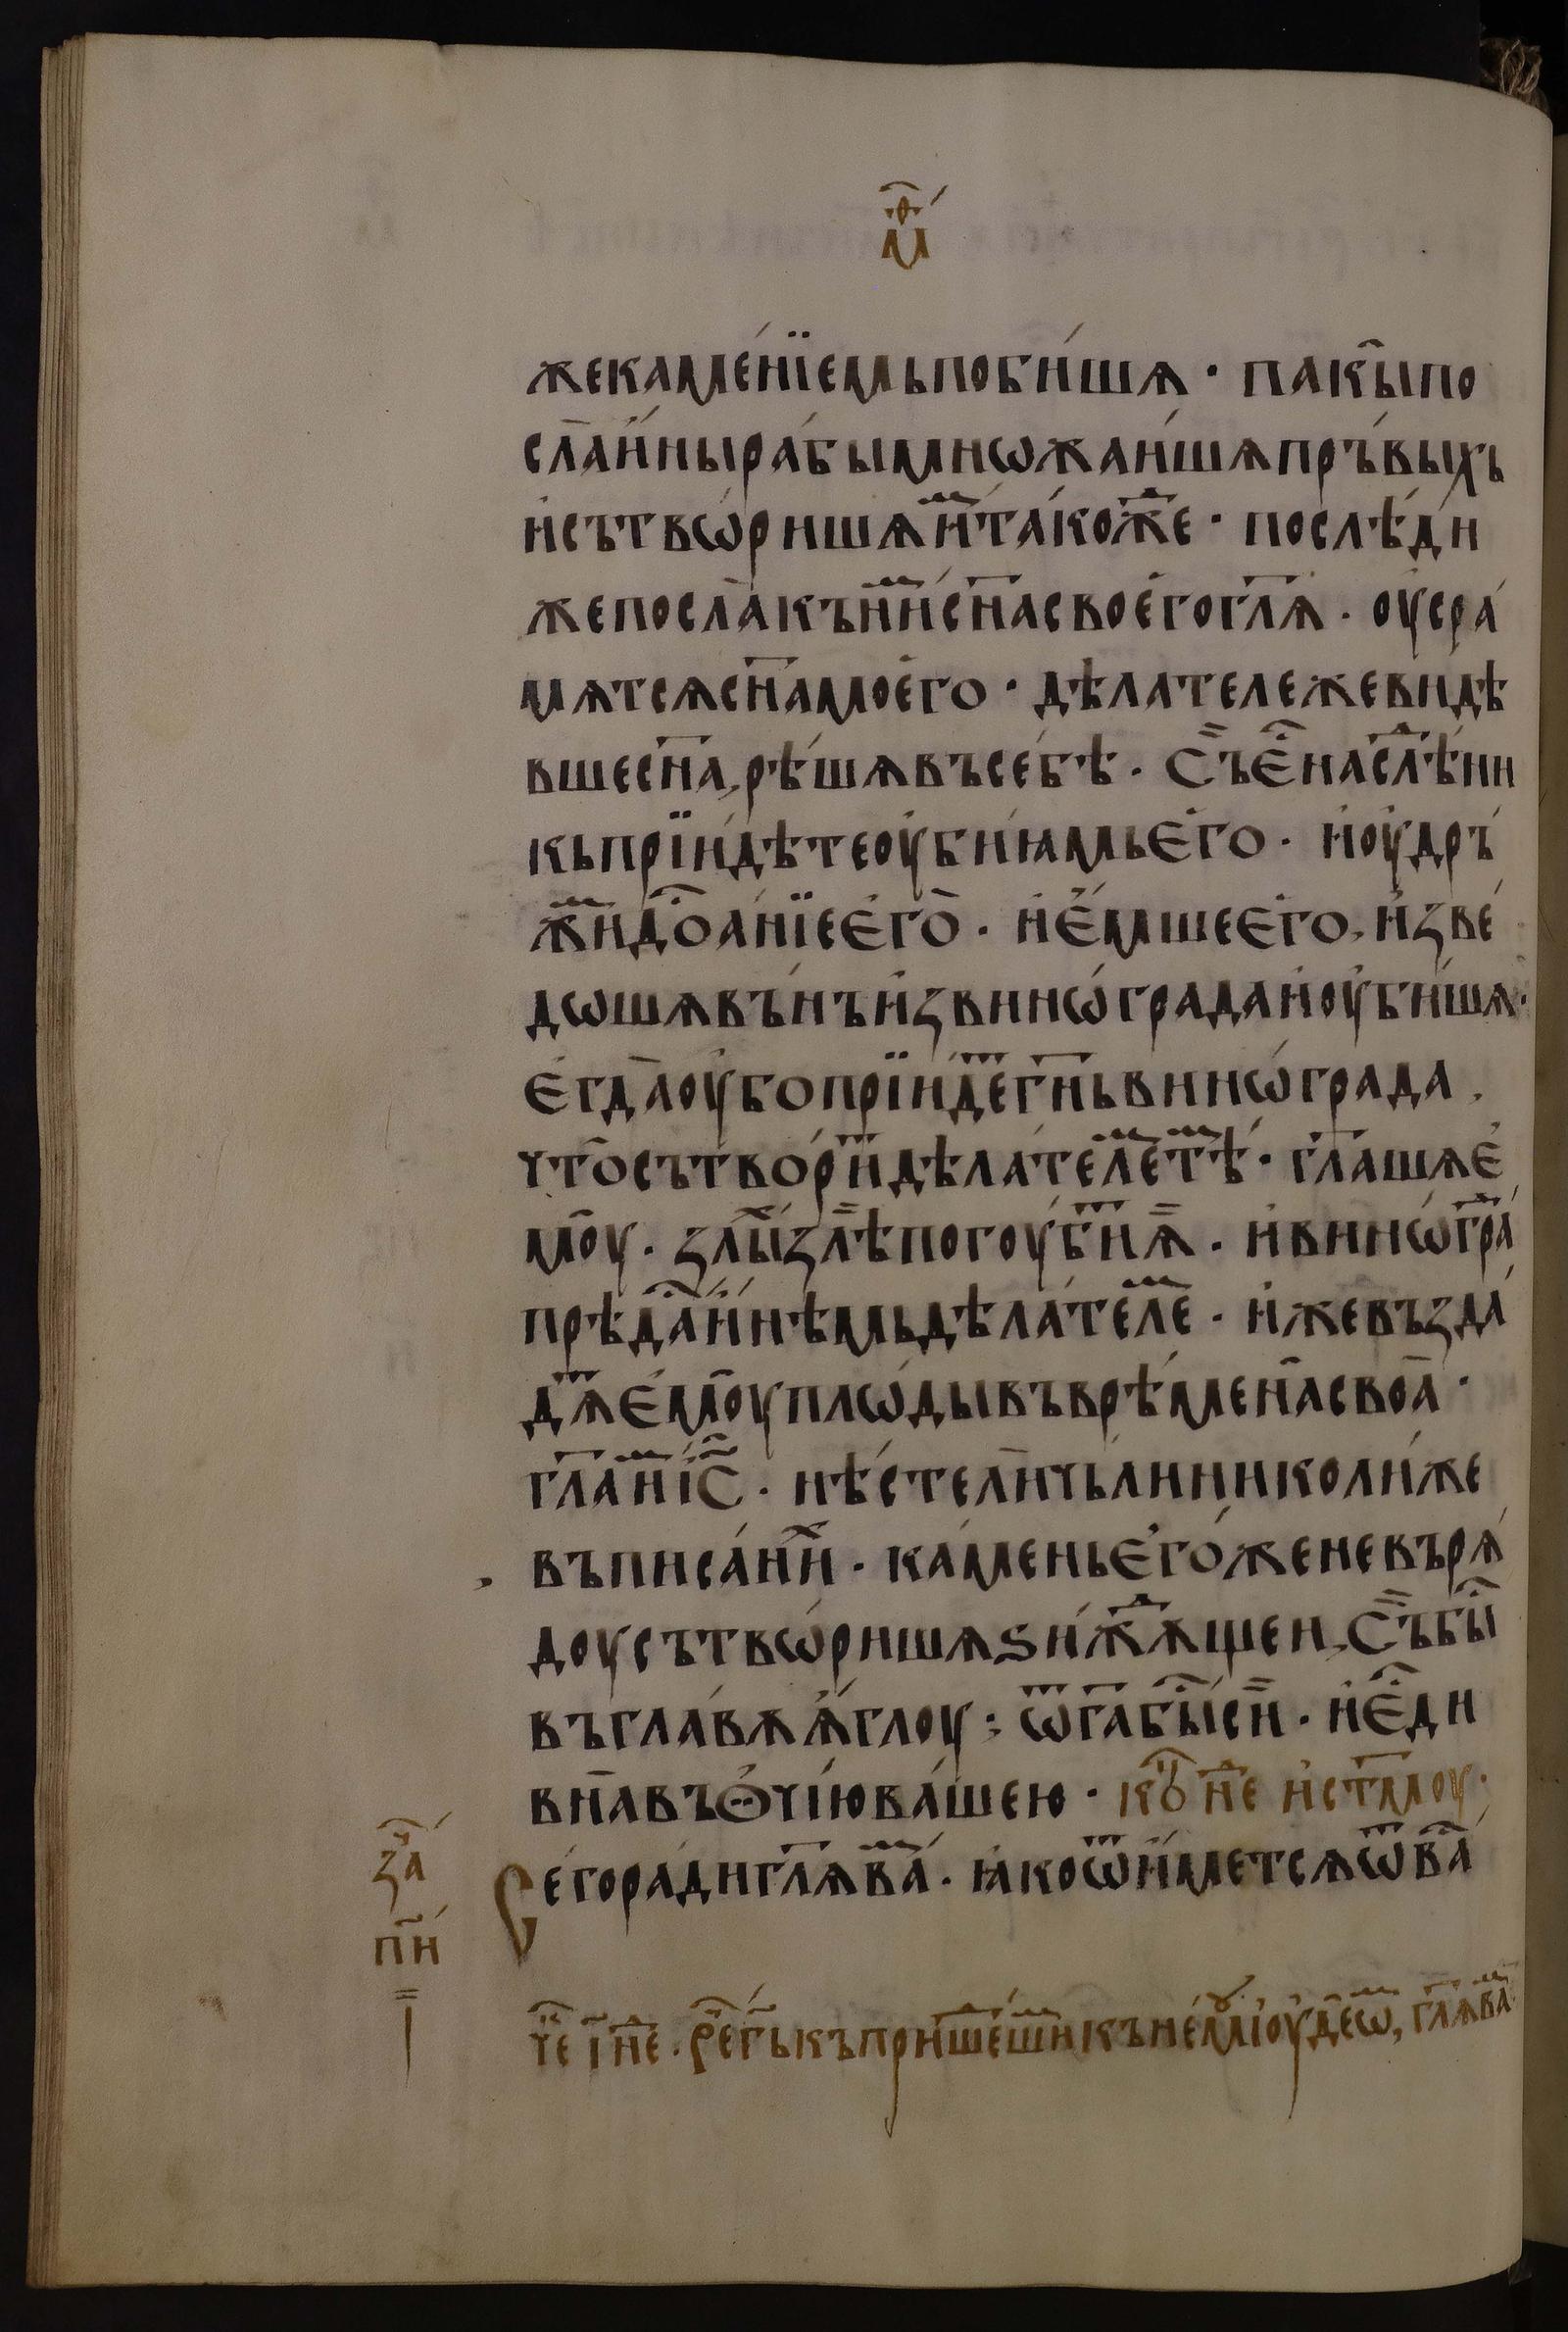 мⷴ҇
же каме́нїемь поби́шѧ · пакы̑ по
сла̀нны ра́бы мнѡжа́ишѧ прь́выхъ
и҆сътвѡ́ришѧ и҆ⷨ та́коⷤже · послѣ́ди
же посла̀ къ ни́ⷨ сн҃а своего̀ гл҃ѧ · оусра́
мѧтсѧ сн҃а моего̀ · дѣлателе же видѣ
вше сн҃а, рѣ́шѧ въ себѣ̀ · Съ еⷭ҇ наслⷣѣ́ни
кь прїидѣ́те оу҆бїимь е҆го̀ · и҆ оу҆дръ́
жиⷨ доⷭ҇а́нїе е҆го̀ · и҆ е҆́мше е҆го̀, и҆зве́
дѡшѧ вънъ́ и҆з винѡ́града и҆ оу҆би́шѧ ·
е҆гда̀ оу҆бо прїи́деⷮ гн҃ь винѡ́града,
что̀ сътво́риⷮ дѣла́телеⷨ тѣ́ⷨ · гл҃ашѧ е҆
моу̀ · злы́ⷯ злѣ̀ погоу́биⷮ ѧ҆̀ · и҆ винѡ́граⷣ
прѣдаⷭ҇ и҆нѣмь дѣла́телеⷨ · и҆же възда́
дѧⷮ е҆моу̀ плѡ́ды въ врѣ́мена своа̀ ·
гл҃а и҆ⷨ і҆с҃ · нѣ́сте ли̑ чьли николи́же
въ писа́ниⷯ · ка́мень е҆го́же не въ рѧ́
доу сътвѡ́ришѧ ѕи́жⷣѫщеи, Съ быⷭ҇
въ гла́вѫ ѫ҆́глоу : ѿ га҃ быⷭ҇ сїи · и҆ еⷭ҇ ди
вна въ ꙫчі́ю ва́шею · коⷰ҇ неⷣ и҆ ст҃моу ·
Сего ра́ди гл҃ѧ ваⷨ · ꙗ҆ко ѿи́метсѧ ѿ ваⷭ҇
заⷱ҇
пи҃
чеⷦ҇ і҃ неⷣ · реⷱ҇ гь҃ къ прише́дшиⷨ къ немоу̀ і҆оуде́ѡⷨ, гл҃ѧ ваⷨ